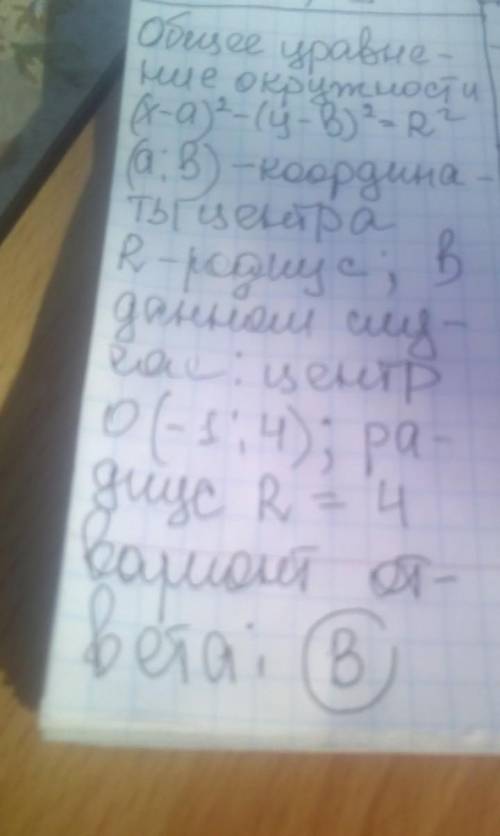 Общее уравне-
ние окружности
(x-a)²-(y-в)²=R²
(a;в)-координа-
ты центра
R-родиус; В
данном слу-
чае: центр
О(-1;4); ра-
диус R = 4
вариант от-
вета: В